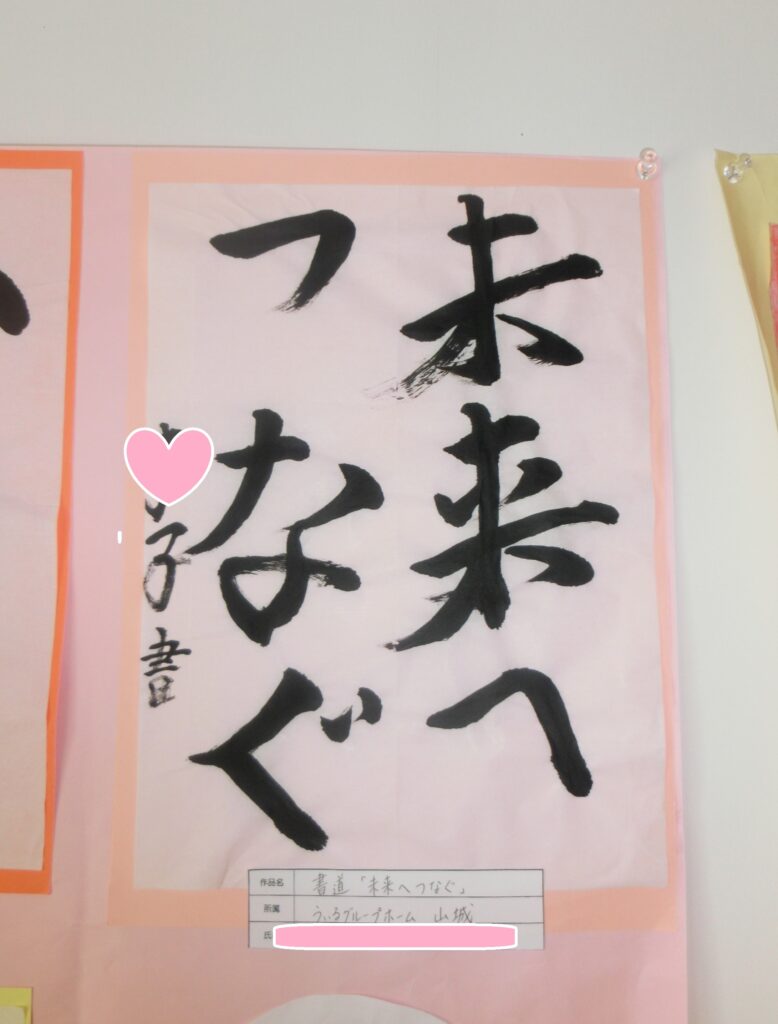 未来へ
つなぐ
子書
作品名 書道「未来へつなぐ」
所属 うぃるグループホーム 山城
氏